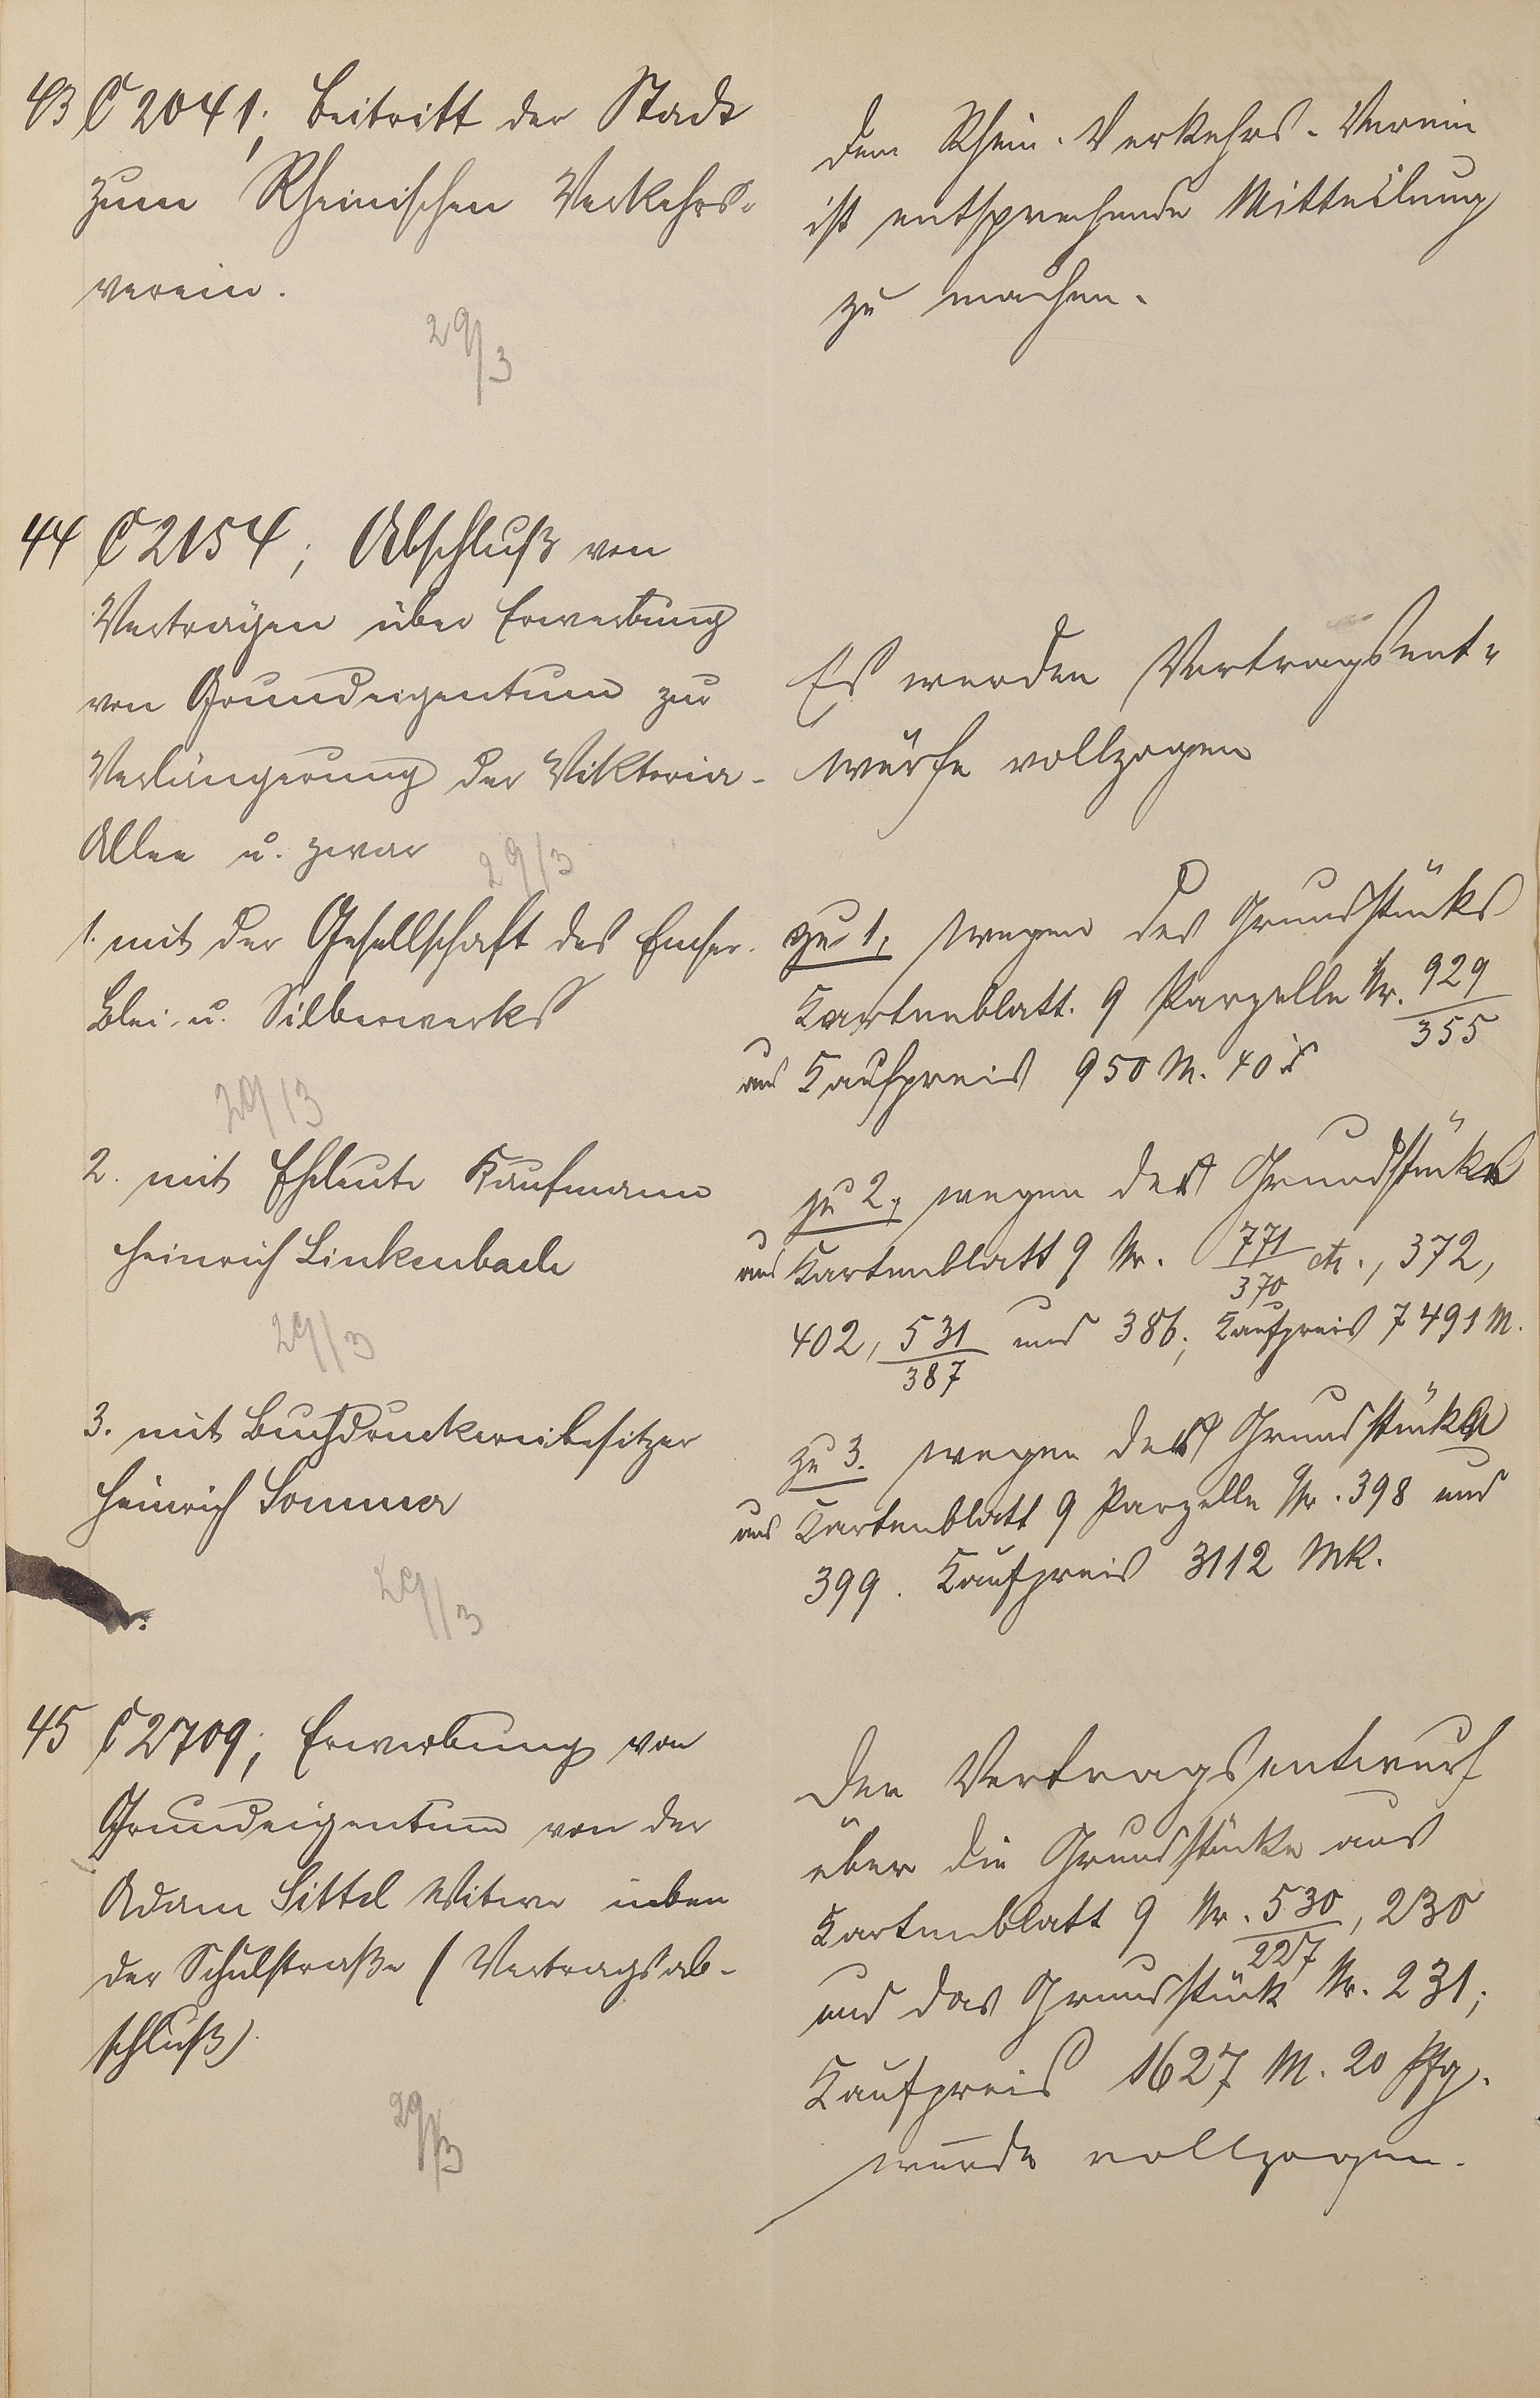 43 C 2041; Beitritt der Stadt
zum Rheinischen Verkehrs-
verein.
29/3
Dem Rhein. Verkehrs-Verein
ist entsprechende Mitteilung
zu machen.
44 C 2154; Abschluß von
Verträgen über Erwerbung
von Grundeigentum zur
Verlängerung der Viktoria-
Allee u. zwar
29/3
Es werden Vertragsent-
würfe vollzogen
1. mit der Gesellschaft des Emser
Blei- u. Silberwerks
29/3
zu 1, wegen des Grundstücks
Kartenblatt 9 Parzelle Nr. 929/355
aus Kaufpreis 950 M. 40
2. mit Eheleute Kaufmann
Heinrich Linkenbach
29/3
zu 2, wegen der Grundstücke
aus Kartenblatt 9 Nr. 771/370 etc., 372,
402, 531/387 und 386; Kaufpreis 7491 M.
3. mit Buchdruckereibesitzer
Heinrich Sommer
29/3
zu 3. wegen der Grundstücke
aus Kartenblatt 9 Parzelle Nr. 398 und
399. Kaufpreis 3112 Mk.
45 C 2709; Erwerbung von
Grundeigentum von der
Adam Sittel Witwe neben
der Schulstraße (Vertragsab-
schluß).
29/3
Der Vertragsentwurf
über die Grundstücke aus
Kartenblatt 9 Nr. 530/227, 230
und das Grundstück Nr. 231;
Kaufpreis 1627 M. 20 Pfg.
wurde vollzogen.